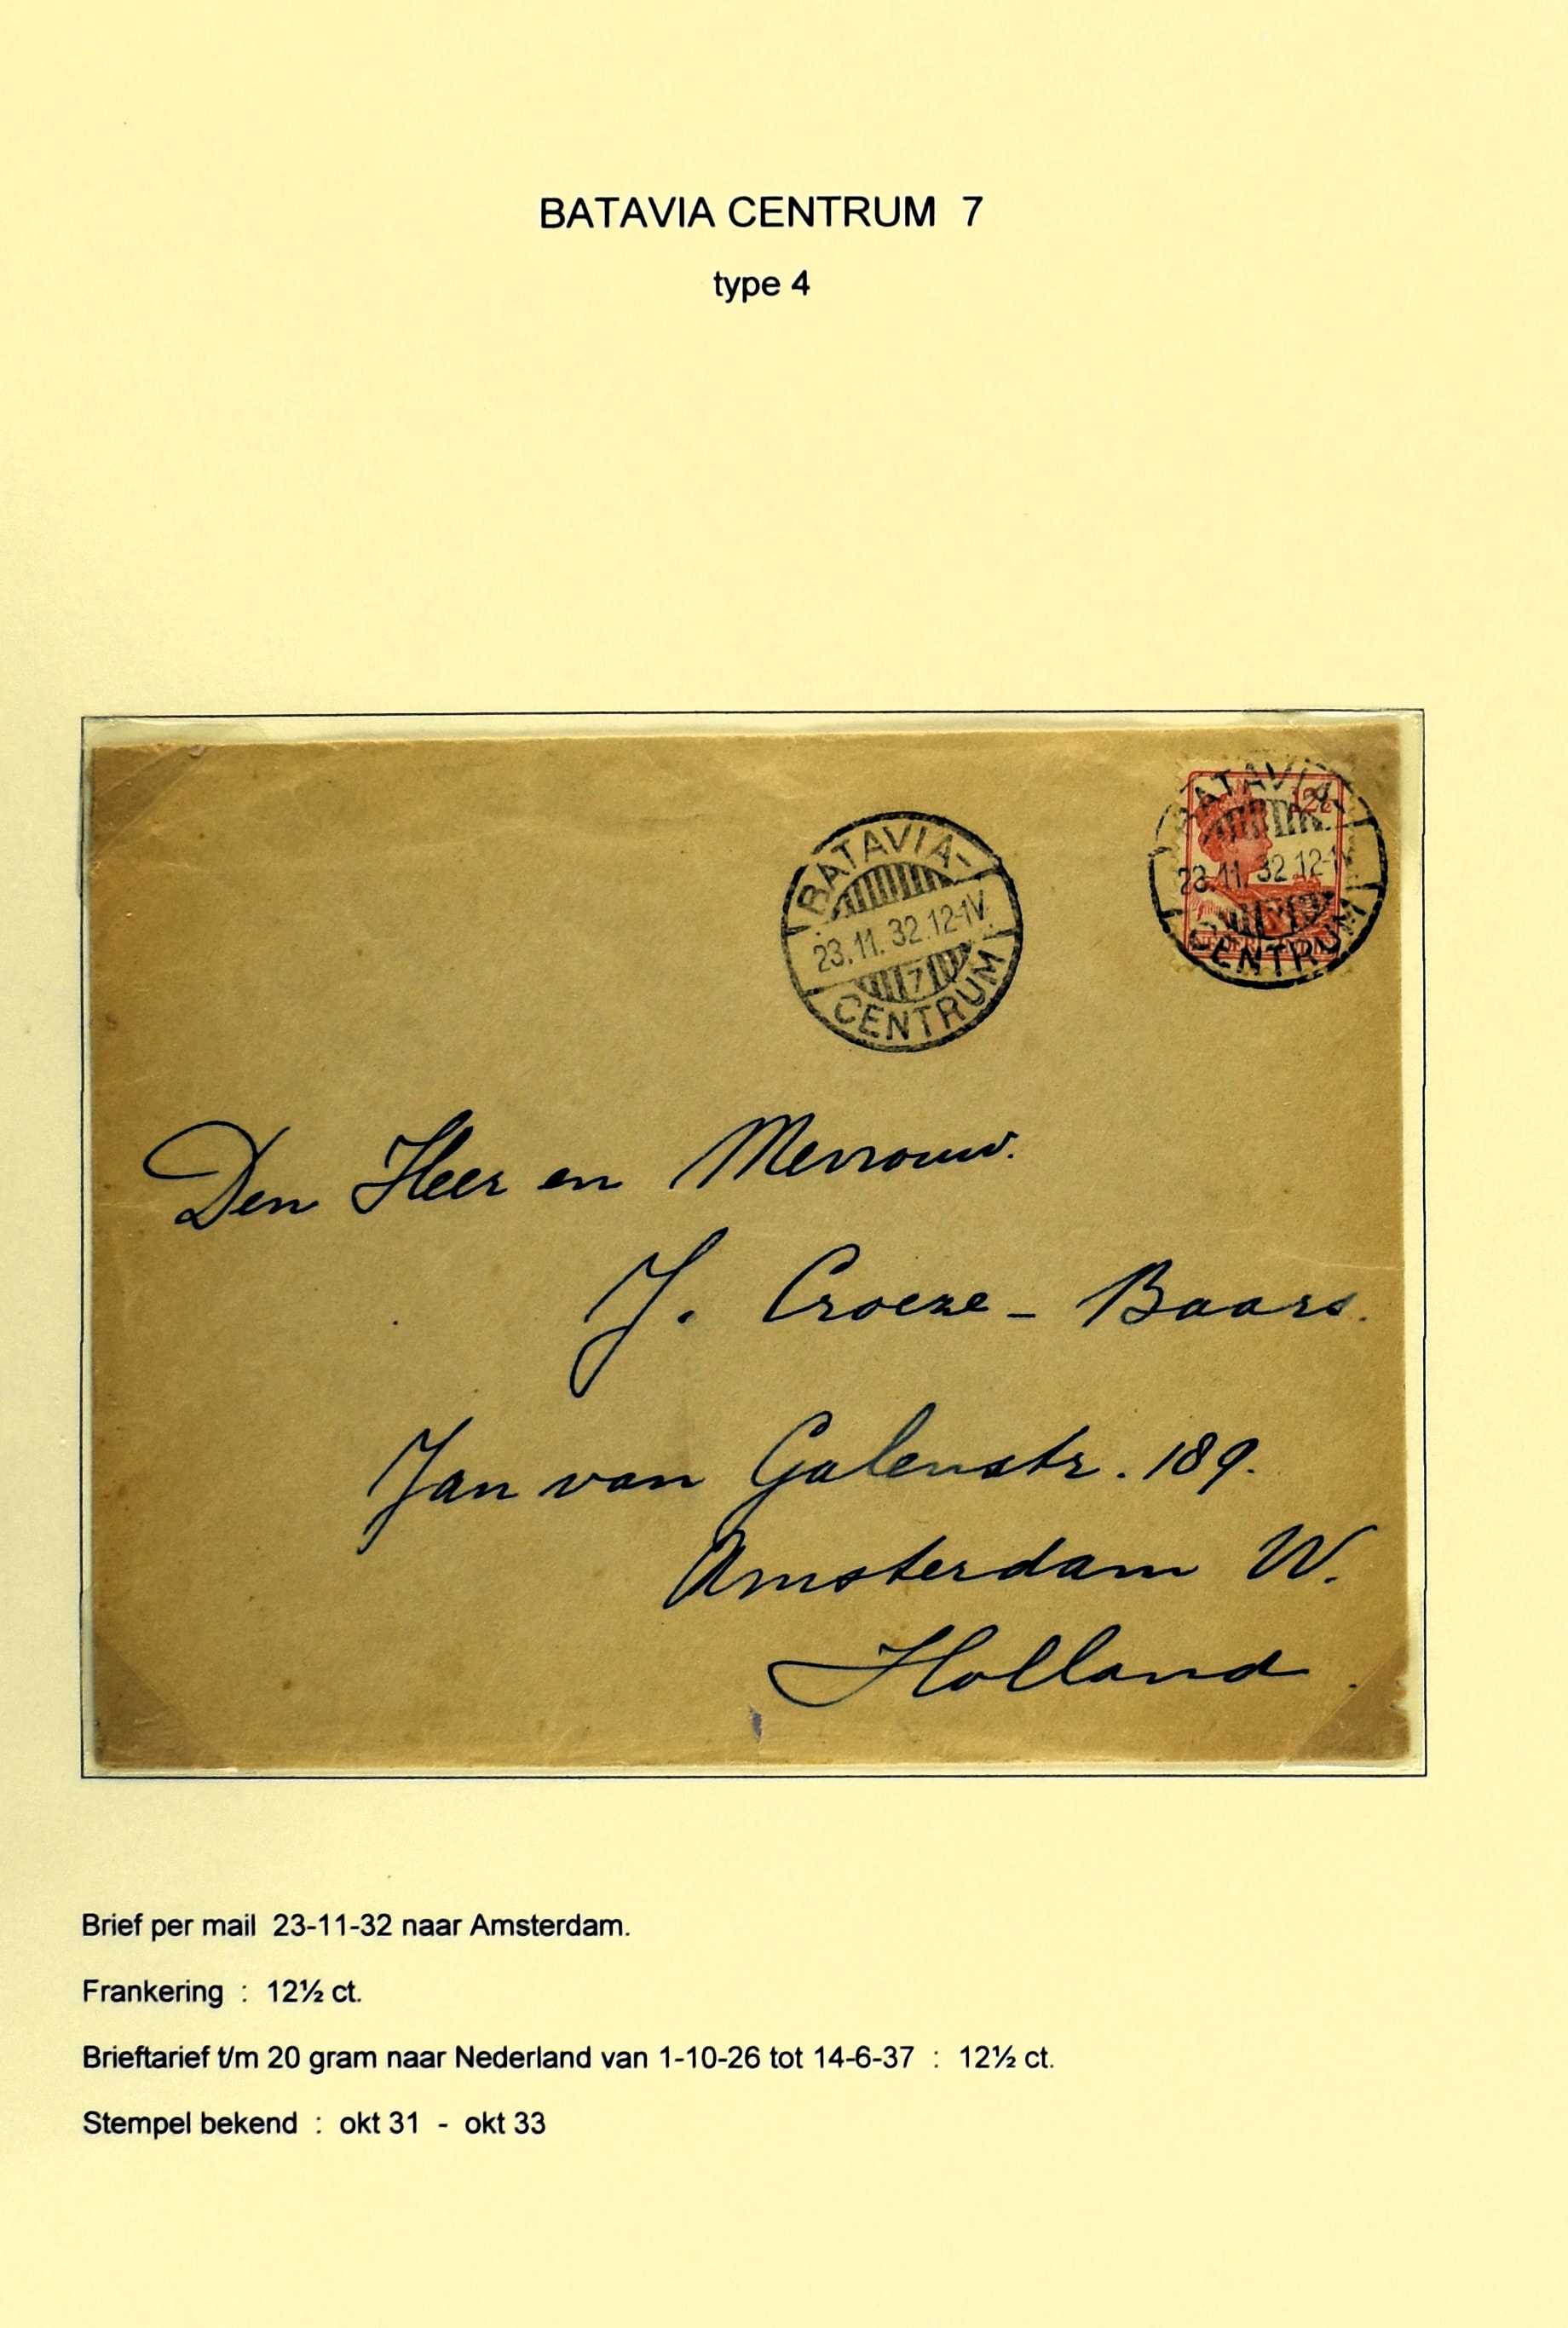 BATAVIA CENTRUM 7
type 4
BATAVIA-
23.11.32.12-1V.
7
CENTRUM
BATAVIA-
12½
23.11.32.12-1V
CENTRUM
Den Heer en Mevrouw.
J. Croeze - Baars.
Jan van Galenstr. 189.
Amsterdam W.
Holland.
Brief per mail 23-11-32 naar Amsterdam.
Frankering : 12½ ct.
Brieftarief t/m 20 gram naar Nederland van 1-10-26 tot 14-6-37 : 12½ ct.
Stempel bekend : okt 31 - okt 33